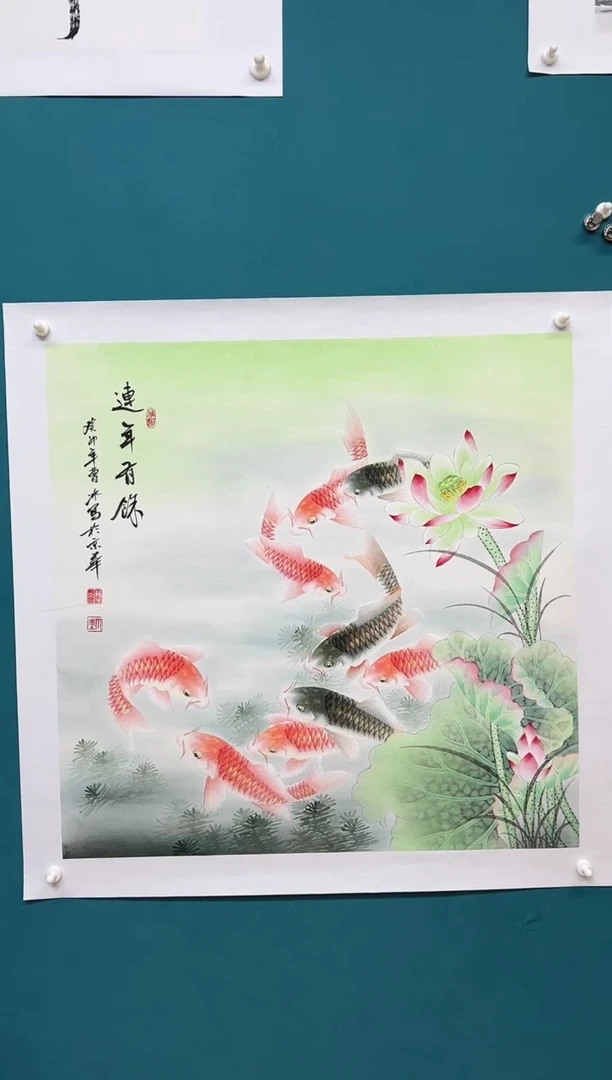 連年有餘
癸卯年曹冰寫於京華